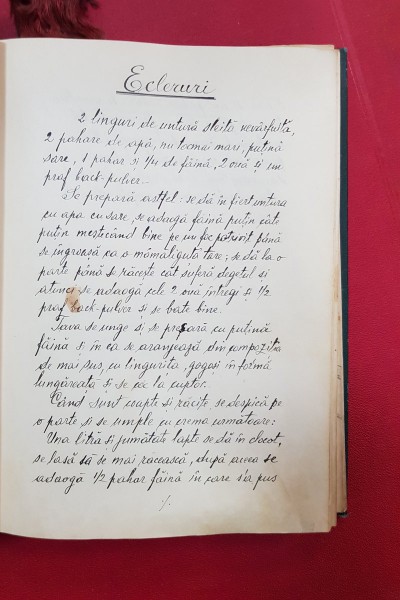 Ecleruri
2 linguri de untură sleită nevârfuită,
2 pahare de apă, nu tocmai mari, puțină
sare, 1 pahar și 1/4 de făină, 2 ouă și un
praf back-pulver.
Se prepară astfel: se dă în fiert untura
cu apa cu sare, se adaogă făină puțin cât
puțin mestecând bine pe un foc potrivit până
se îngroașă ca o mămăliguță tare; se dă la o
parte până se răcește cât suferă degetul și
atunci se adaogă cele 2 ouă întregi și 1/2
praf back-pulver și se bate bine.
Tava se unge și se presară cu puțină
făină și în ea se aranjează din compoziția
de mai sus, cu lingurița, gogoși în formă
lungăreață și se dă la cuptor.
Când sunt coapte și răcite, se despică pe
o parte și se umple cu crema următoare:
Una litră și jumătate lapte se dă în clocot,
se lasă să se mai răcească, după aceea se
adaogă 1/2 pahar făină în care s'a pus
./.